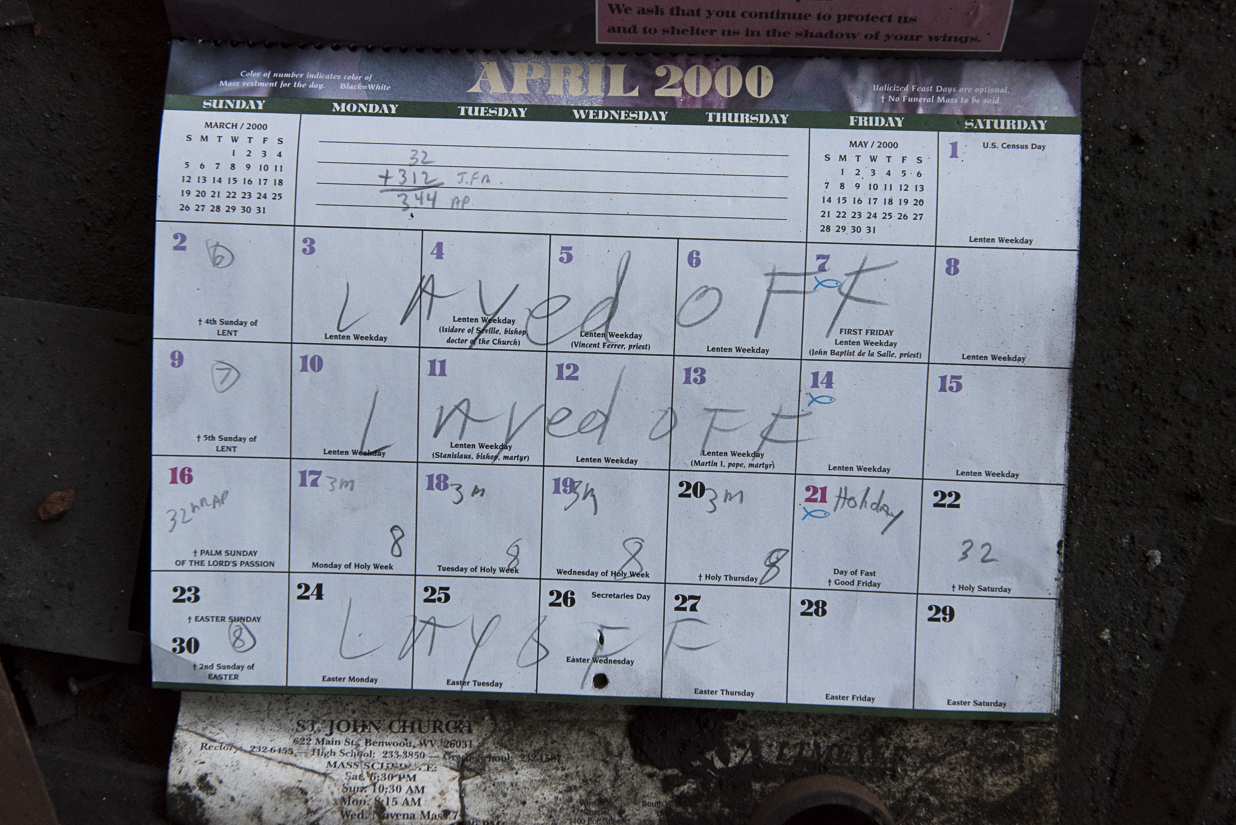 We ask that you continue to protect us
and to shelter us in the shadow of your wings.
Color of number indicates color of
Mass vestment for the day. Black=White
APRIL 2000
Italicized Feast Days are optional.
† No Funeral Mass to be said.
SUNDAY MONDAY TUESDAY WEDNESDAY THURSDAY FRIDAY SATURDAY
MARCH / 2000
S M T W T F S
1 2 3 4
5 6 7 8 9 10 11
12 13 14 15 16 17 18
19 20 21 22 23 24 25
26 27 28 29 30 31
32
+312 J.F.A.
344 AP.
MAY / 2000
S M T W T F S
1 2 3 4 5 6
7 8 9 10 11 12 13
14 15 16 17 18 19 20
21 22 23 24 25 26 27
28 29 30 31
1 U.S. Census Day
Lenten Weekday
2 6 3 4 5 6 7 8
LAyed OFF
† 4th Sunday of
LENT
Lenten Weekday
Lenten Weekday
(Isidore of Seville, bishop,
doctor of the Church)
Lenten Weekday
(Vincent Ferrer, priest)
Lenten Weekday
FIRST FRIDAY
Lenten Weekday
(John Baptist de la Salle, priest)
Lenten Weekday
9 7 10 11 12 13 14 15
LAyed OFF
† 5th Sunday of
LENT
Lenten Weekday
Lenten Weekday
(Stanislaus, bishop, martyr)
Lenten Weekday
Lenten Weekday
(Martin I, pope, martyr)
Lenten Weekday
Lenten Weekday
16
32
† PALM SUNDAY
OF THE LORD'S PASSION
17 3m
8
Monday of Holy Week
18 3m
8
Tuesday of Holy Week
19 3m
8
Wednesday of Holy Week
20 3m
8
† Holy Thursday
21 Holiday
Day of Fast
† Good Friday
22
32
† Holy Saturday
23
† EASTER SUNDAY
30 8
† 2nd Sunday of
EASTER
24 25 26 Secretaries Day 27 28 29
LAyOFF
Easter Monday
Easter Tuesday
Easter Wednesday
Easter Thursday
Easter Friday
Easter Saturday
ST. JOHN CHURCH
622 Main St., Benwood, WV 26031
Rectory: 232-6455 — High School: 233-3850 —
MASS SCHEDULE:
Sat. 6:30 PM
Sun. 10:30 AM
Mon. 8:15 AM
Wed. Novena Mass 7